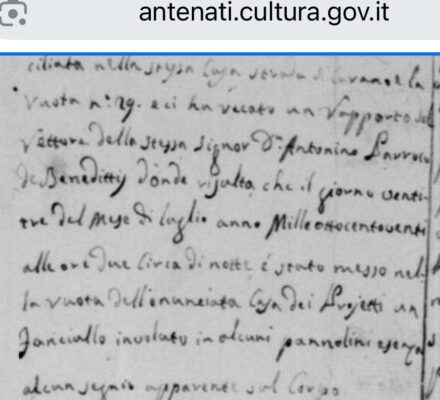 antenati.cultura.gov.it
ciliata nella stessa Casa strada
Ruota n.° 29. e ci ha recato un Rapporto del
Rettore della stessa Signor D. Antonino
de Benedittis donde risulta, che il giorno venti
tre del Mese di luglio anno Mille ottocentoventi
alle ore due circa di notte é stato messo nel
la ruota dell'enunciata Casa dei Projetti un
fanciullo involuto in alcuni pannolini e senza
alcun segnio apparente sul Corpo.